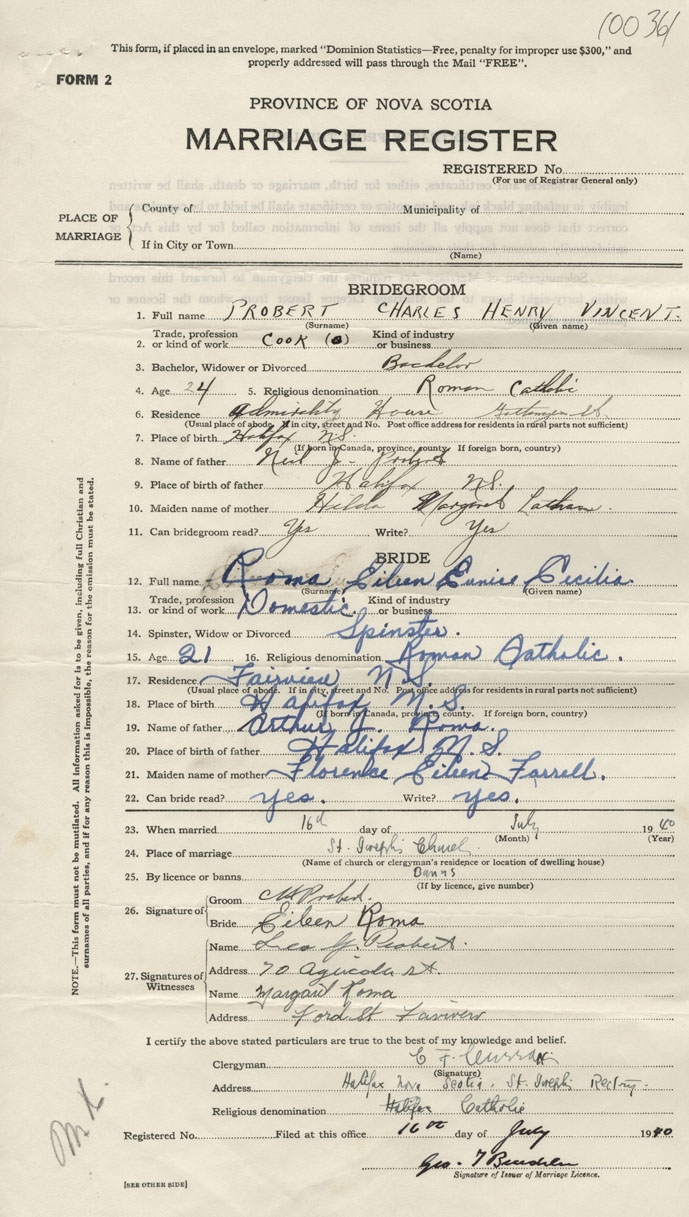 10036
This form, if placed in an envelope, marked "Dominion Statistics—Free, penalty for improper use $300," and
properly addressed will pass through the Mail "FREE".
FORM 2
PROVINCE OF NOVA SCOTIA
MARRIAGE REGISTER
REGISTERED No.
(For use of Registrar General only)
PLACE OF MARRIAGE
County of Municipality of
If in City or Town
(Name)
BRIDEGROOM
1. Full name PROBERT CHARLES HENRY VINCENT.
(Surname) (Given name)
2. Trade, profession or kind of work COOK Kind of industry or business
3. Bachelor, Widower or Divorced Bachelor
4. Age 24 5. Religious denomination Roman Catholic
6. Residence Admirality House Gottingen St.
(Usual place of abode. If in city, street and No. Post office address for residents in rural parts not sufficient)
7. Place of birth Halifax N.S.
(If born in Canada, province, county. If foreign born, country)
8. Name of father Neil J. Probert
9. Place of birth of father Halifax N.S.
10. Maiden name of mother Hilda Margaret Latham.
11. Can bridegroom read? Yes Write? Yes
BRIDE
12. Full name Roma Eileen Eunise Cecilia
(Surname) (Given name)
13. Trade, profession or kind of work Domestic. Kind of industry or business
14. Spinster, Widow or Divorced Spinster.
15. Age 21 16. Religious denomination Roman Catholic.
17. Residence Fairview N.S.
(Usual place of abode. If in city, street and No. Post office address for residents in rural parts not sufficient)
18. Place of birth Halifax N.S.
(If born in Canada, province, county. If foreign born, country)
19. Name of father Arthur J. Roma.
20. Place of birth of father Halifax N.S.
21. Maiden name of mother Florence Eileen Farrell.
22. Can bride read? yes. Write? yes.
23. When married 16th day of July 1940
(Month) (Year)
24. Place of marriage St. Joseph's Church
(Name of church or clergyman's residence or location of dwelling house)
25. By licence or banns Banns
(If by licence, give number)
26. Signature of
Groom Probert.
Bride Eileen Roma
27. Signatures of Witnesses
Name Leo J. Probert.
Address 70 Agricola st.
Name Margaret Roma
Address Ford St
I certify the above stated particulars are true to the best of my knowledge and belief.
Clergyman C F Curran
(Signature)
Address Halifax Nova Scotia. St. Joseph's Rectory.
Religious denomination Catholic
Registered No. Filed at this office 16th day of July 1940
Geo. 
Signature of Issuer of Marriage Licence.
[SEE OTHER SIDE]
NOTE.—This form must not be mutilated. All Information asked for is to be given, including full Christian and
surnames of all parties, and if for any reason this is impossible, the reason for the omission must be stated.